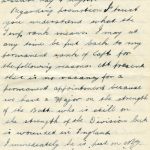 Regarding promotion I trust
you understand what the
Temp rank means. I may at
any time be put back to my
permanent rank of Capt for
the following reason. At present
there is no vacancy for a
permanent appointment because
we have a Major on the strength
of the Batt who is still on
the strength of the Division but
is wounded in England
Immediately he is put on